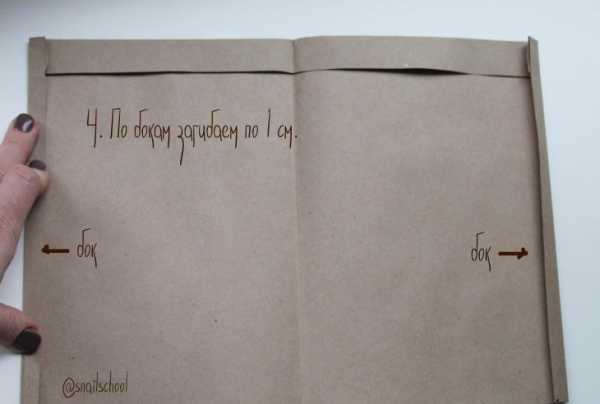 4. По бокам загибаем по 1 см.
бок
бок
@snailschool